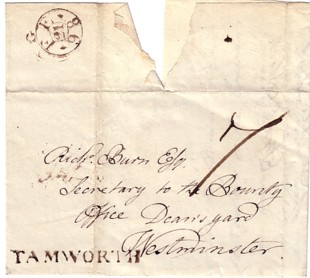 7
Richd. Burn Esqr.
Secretary to the Bounty
Office Deans yard
Westminster
TAMWORTH